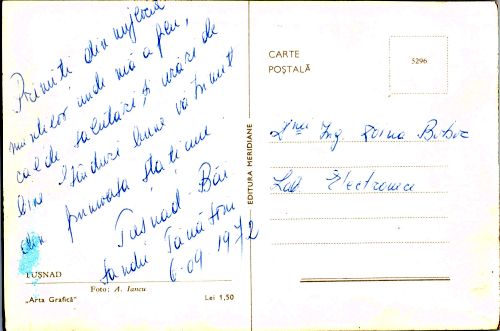 Primiți din mijlocul
munților unde mă aflu,
calde salutări și urări de
bine gânduri bune vă trimit
din frumoasa stațiune
Tușnad - Băi
Sandu Tănăsoiu
6-09 1972
TUȘNAD
Foto: A. Iancu
„Arta Grafică”
Lei 1,50
EDITURA MERIDIANE
CARTE
POȘTALĂ
5296
Ing.
Lab Electronice